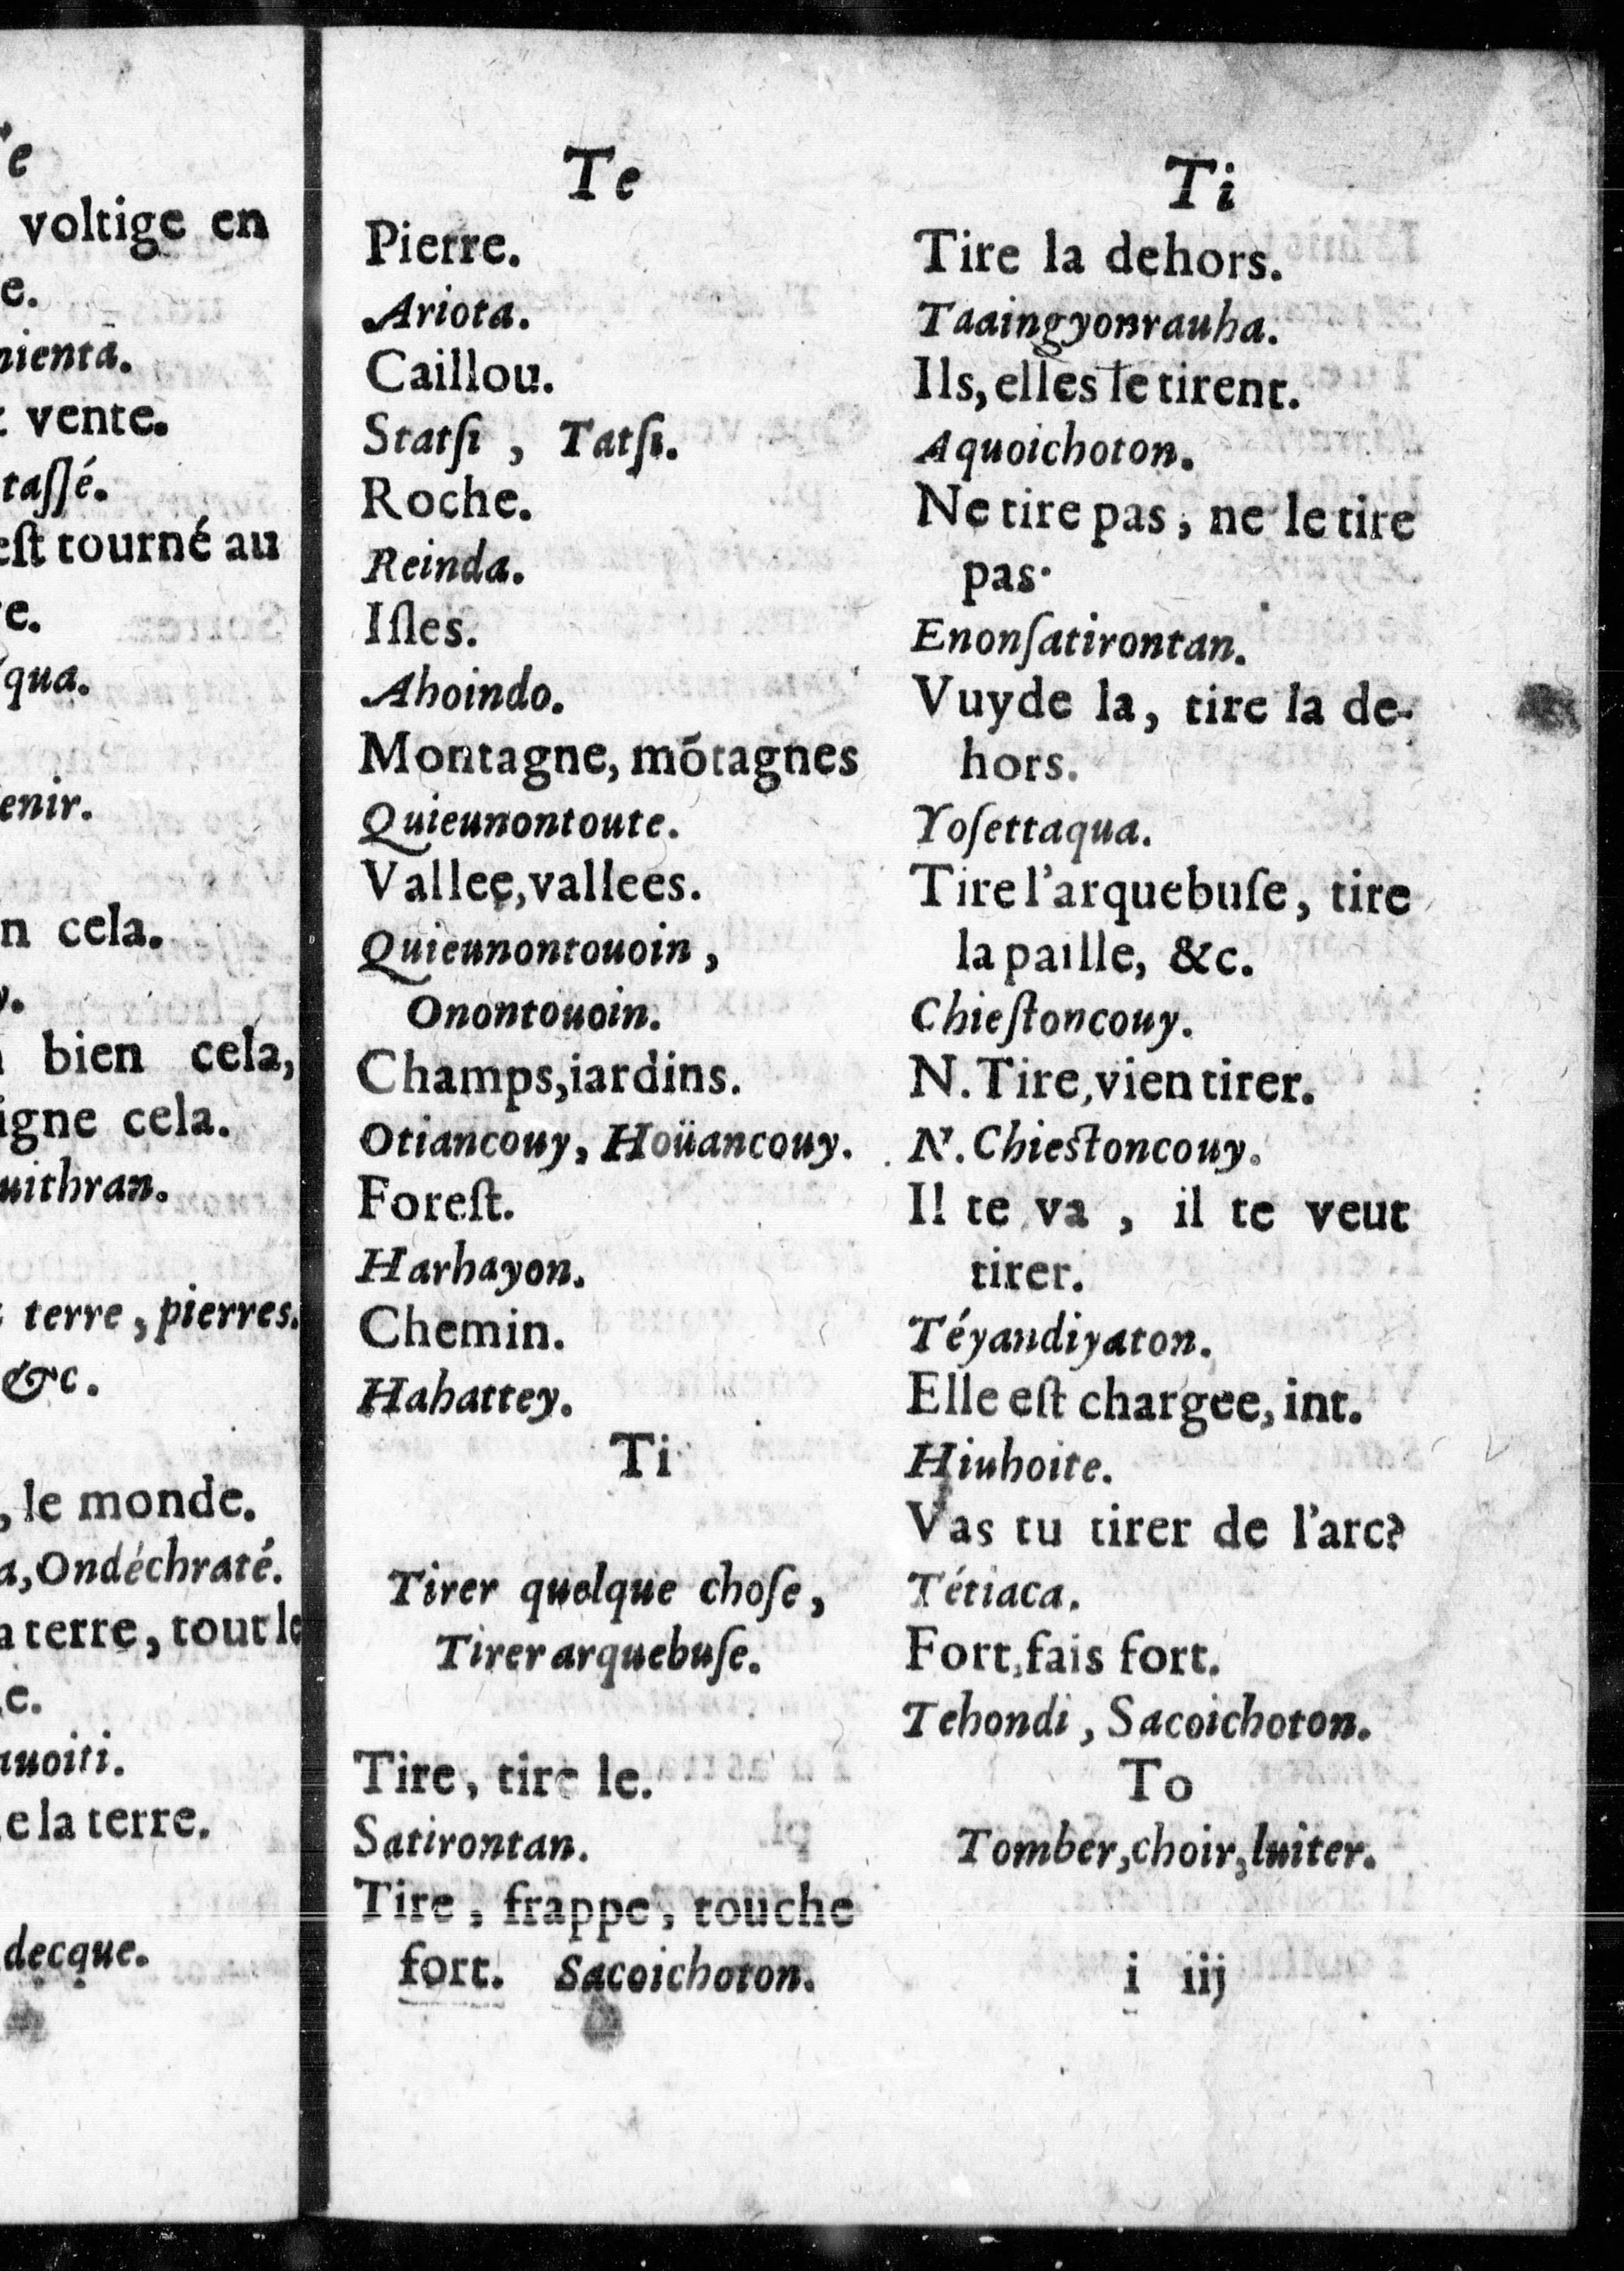 e
voltige en
e.
nienta.
vente.
taſſé.
eſt tourné au
e.
qua.
enir.
n cela.
y.
bien cela,
igne cela.
uithran.
terre, pierres.
&c.
, le monde.
a, Ondéchraté.
a terre, tout le
e.
auoiti.
e la terre.
decque.
Te
Pierre.
Ariota.
Caillou.
Statſi, Tatſi.
Roche.
Reinda.
Iſles.
Ahoindo.
Montagne, mōtagnes
Quieunontoute.
Vallee, vallees.
Quieunontouoin,
Onontouoin.
Champs, iardins.
Otiancouy, Hoüancouy.
Foreſt.
Harhayon.
Chemin.
Hahattey.
Ti
Tirer quelque choſe,
Tirer arquebuſe.
Tire, tire le.
Satirontan.
Tire, frappe, touche
fort. Sacoichoton.
Ti
Tire la dehors.
Taaingyonrauha.
Ils, elles le tirent.
Aquoichoton.
Ne tire pas, ne le tire
pas.
Enonſatirontan.
Vuyde la, tire la de-
hors.
Yoſettaqua.
Tire l'arquebuſe, tire
la paille, &c.
Chieſtoncouy.
N. Tire, vien tirer.
N. Chieſtoncouy.
Il te va, il te veut
tirer.
Téyandiyaton.
Elle eſt chargee, int.
Hiuhoite.
Vas tu tirer de l'arc?
Tétiaca.
Fort, fais fort.
Tehondi, Sacoichoton.
To
Tomber, choir, luiter.
i iij